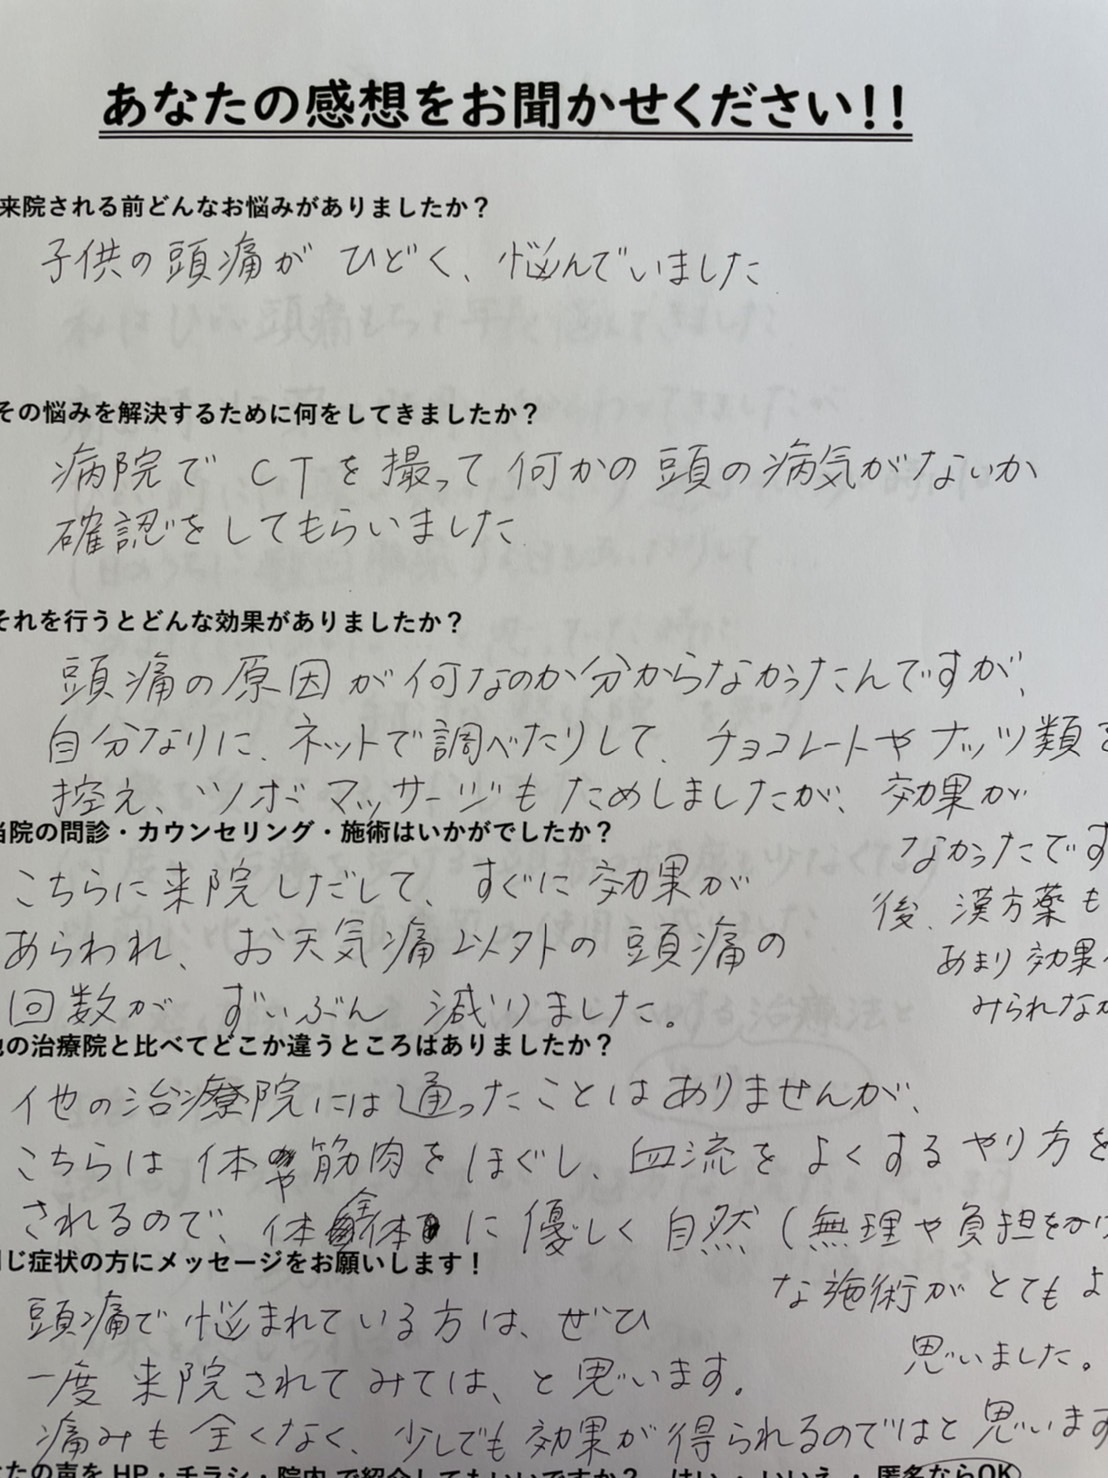 あなたの感想をお聞かせください!!
来院される前どんなお悩みがありましたか？
子供の頭痛が ひどく、悩んでいました
その悩みを解決するために何をしてきましたか？
病院で CTを撮って何かの頭の病気がないか
確認をしてもらいました
それを行うとどんな効果がありましたか？
頭痛の原因が何なのか分からなかったんですが、
自分なりに、ネットで調べたりして、チョコレートやナッツ類を
控え、ツボマッサージもためしましたが、効果が
なかったです
後、漢方薬も
あまり効果
みられなか
当院の問診・カウンセリング・施術はいかがでしたか？
こちらに来院しだして、すぐに効果が
あらわれ、お天気痛以外の頭痛の
回数が ずいぶん 減りました。
他の治療院と比べてどこか違うところはありましたか？
他の治療院には通ったことはありませんが、
こちらは 体や筋肉をほぐし、血流をよくするやり方を
されるので、体全体に優しく自然(無理や負担をか
な施術がとてもよ
思いました。
同じ症状の方にメッセージをお願いします！
頭痛で悩まれている方は、ぜひ
一度来院されてみては、と思います。
痛みも全くなく、少しでも効果が得られるのではと思います
たの声を HP・チラシ・院内で紹介してもいいですか？ はい・いいえ・匿名ならOK